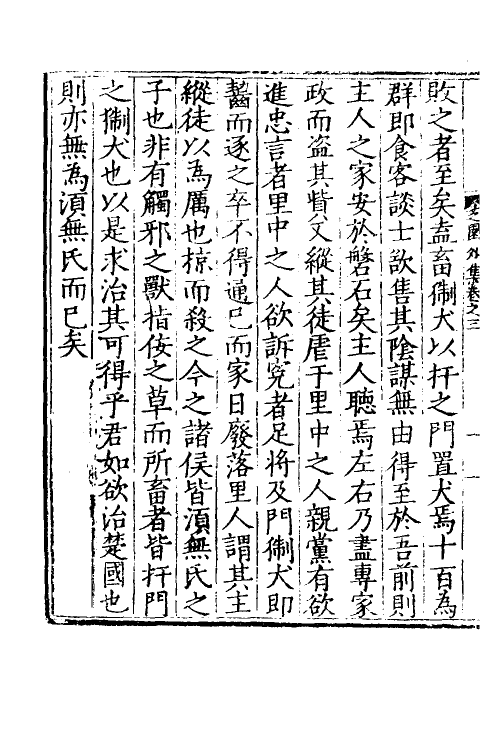 敗之者至矣盍畜猘犬以扞之門置犬焉十百為
群即食客談士欲售其陰謀無由得至於吾前則
主人之家安於磐石矣主人聽焉左右乃盡專家
政而盗其貲又縱其徒虐于里中之人親黨有欲
進忠言者里中之人欲訴寃者足將及門猘犬即
齧而逐之卒不得通已而家日廢落里人謂其主
縱徒以為厲也掠而殺之今之諸侯皆湏無氏之
子也非有觸邪之獸指佞之草而所畜者皆扞門
之猘犬也以是求治其可得乎君如欲治楚國也
則亦無為湏無氏而已矣
外集卷之三
一